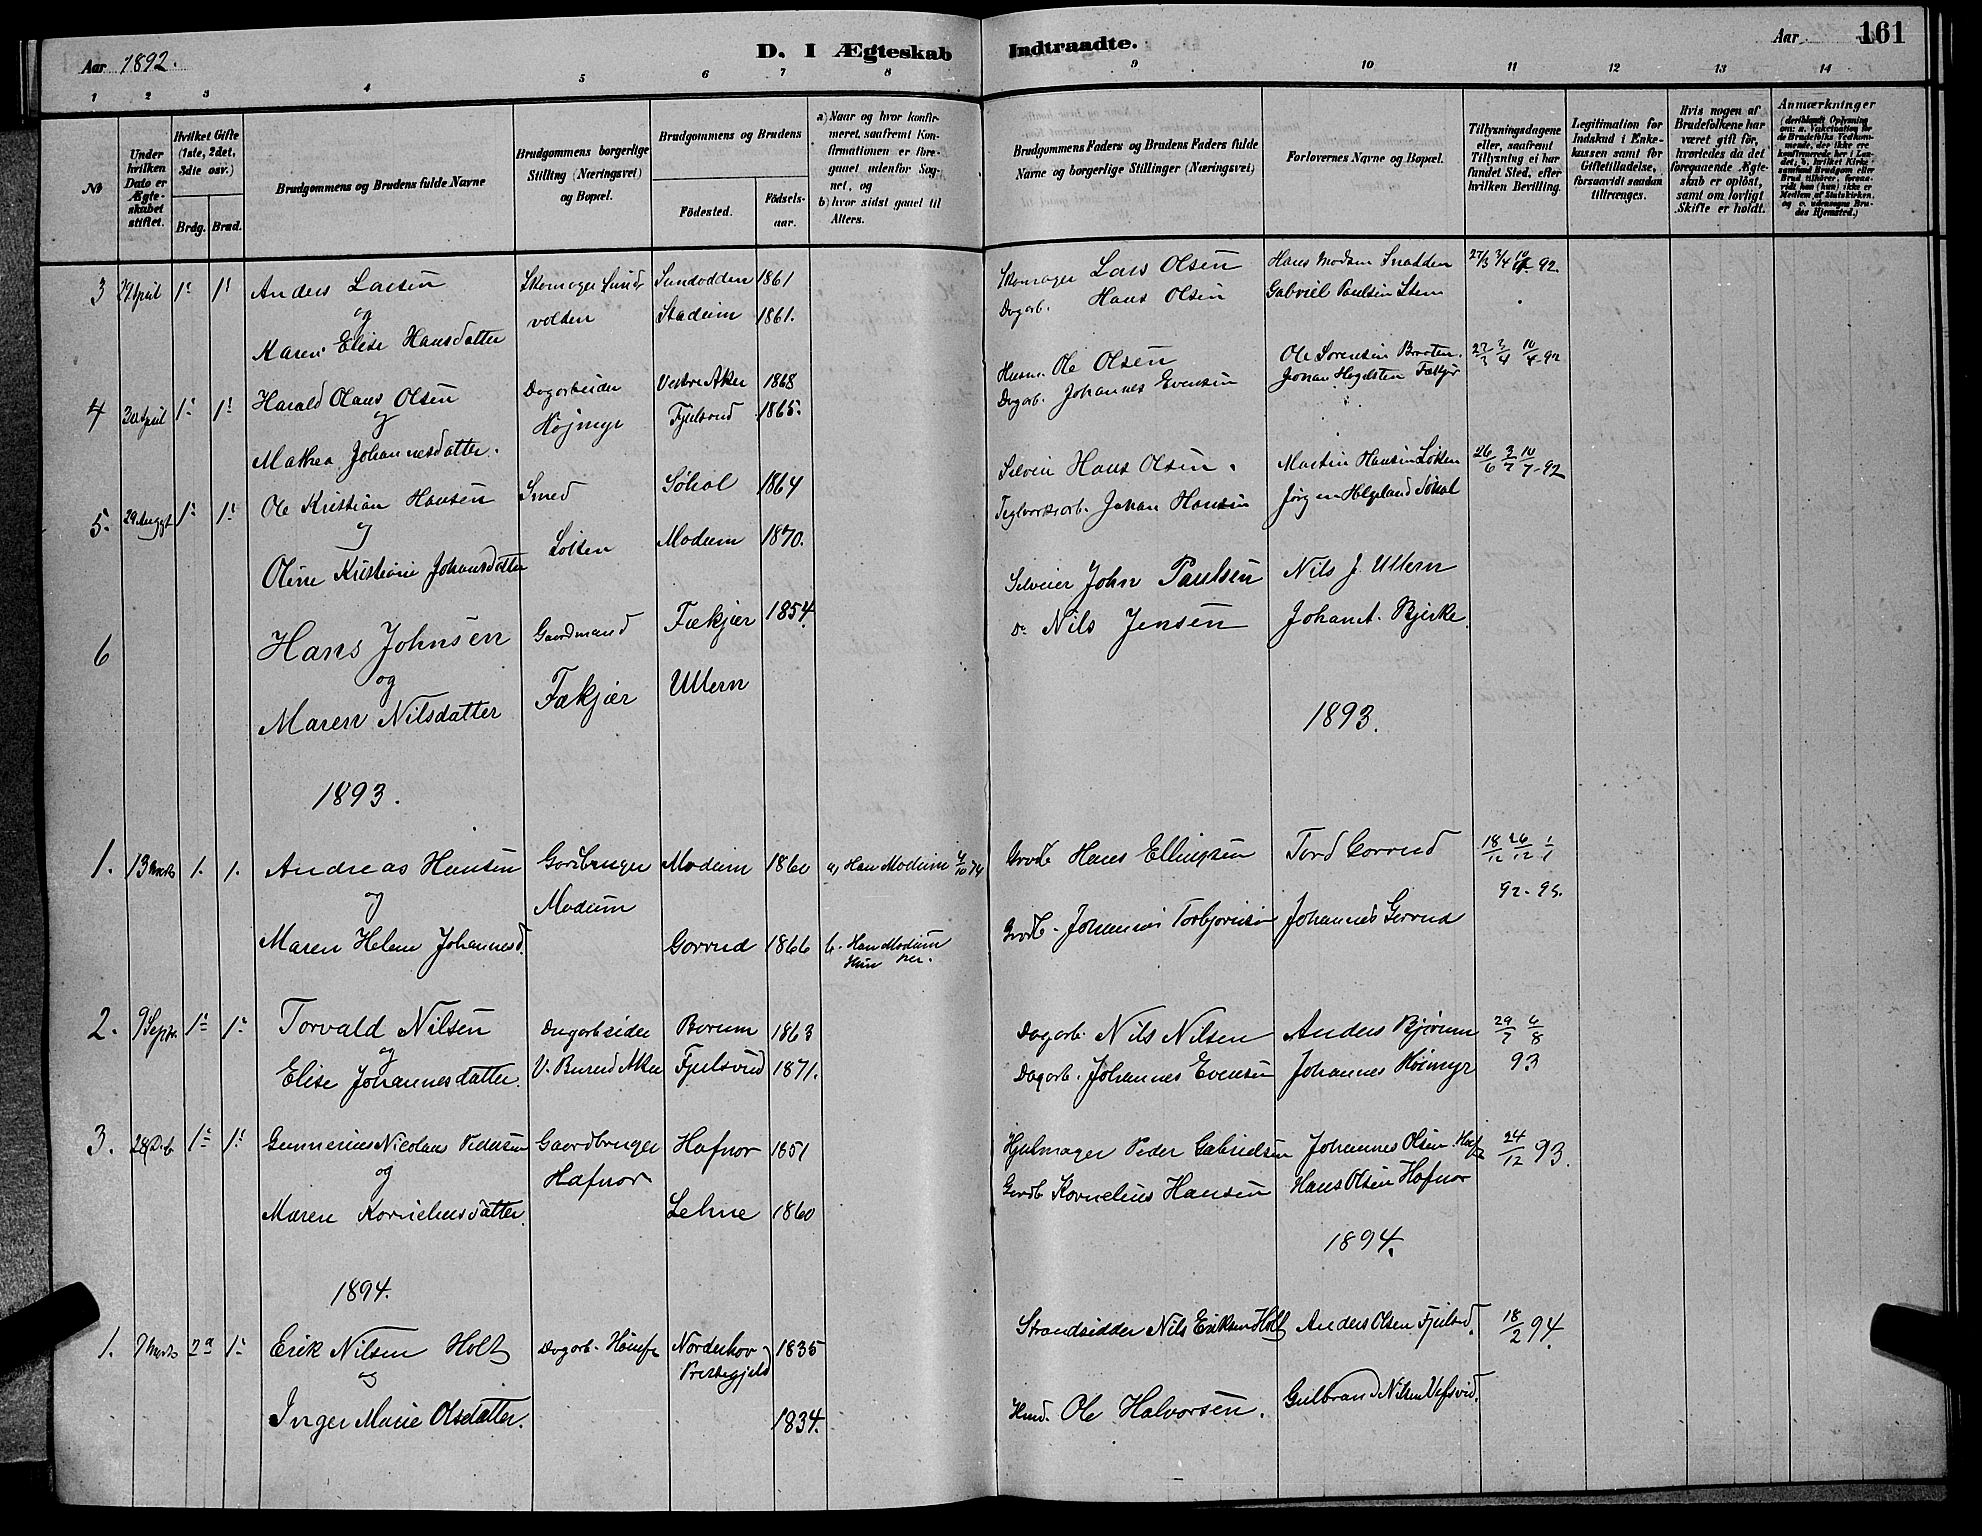 Aar 1892.
D. I Ægteskab Indtraadte.
Aar 161
1 2 3 4 5 6 7 8 9 10 11 12 13 14
No
Under hvilken Dato er Ægteskabet stiftet.
Hvilket Gifte (1ste, 2det, 3die osv.)
Brdg. Brud.
Brudgommens og Brudens fulde Navne
Brudgommens borgerlige Stilling (Næringsvei) og Bopæl.
Brudgommens og Brudens
Födested. Födselsaar.
a) Naar og hvor konfirmeret, saafremt Konfirmationen er foregaaet udenfor Sognet, og
b) hvor sidst gaaet til Alters.
Brudgommens Faders og Brudens Faders fulde Navne og borgerlige Stillinger (Næringsvei)
Forlovernes Navne og Bopæl.
Tillysningsdagene eller, saafremt Tillysning ei har fundet Sted, efter hvilken Bevilling.
Legitimation for Indskud i Enkekassen samt for Giftetilladelse, forsaavidt saadan tiltrænges.
Hvis nogen af Brudefolkene har været gift før, hvorledes da det foregaaende Ægteskab er oplöst, samt om lovligt Skifte er holdt.
Anmærkninger
3 29 April 1ste 1ste Anders Larsen Skomager Sundvolden Sundodden 1861 Skomager Lars Olsen Hans Madsen Snadden 27/3 3/4 10/4 92.
og
Maren Elise Hansdatter Stadum 1861. Dagarb. Hans Olsen Gabriel Paulsen Stein
4 30 April 1ste 1ste Harald Olaus Olsen Dagarbeider Vestre Aker 1868 Husm. Ole Olsen Ole Sørensen Braaten. 27/3 3/4 10/4 92
og Højmyr
Mathea Johannesdatter. Fjulsrud 1865. Dagarb. Johannes Evensen
5. 29 August 1ste 1ste Ole Kristian Hansen Smed Søhol 1864 Selveier Hans Olsen. Martin Hansen Løken 26/6 3/7 10/7-92
Løken
Oline Kristiane Johansdatter Modum 1870. Teglverksarb. Johan Hansen Jørgen Helgeland Søhol
6 Hans Johnsen Gaardmand Fækjær 1854. Selveier John Paulsen Nils J. Ullern
og
Maren Nilsdatter Fækjær Ullern Do Nils Jensen Johan A. Bjerke
1893. 1893.
1. 13 Marts 1. 1. Andreas Hansen Gardbruger Modum 1860 a, Han Modum 4/10 74 Grdb. Hans Ellingsen Tord Gorrud 18/12 26/12 1/1
og Modum 92-93.
Maren Helene Johannesd. Gorrud 1866 b. Han Modum Hun her. Grdb. Johannes Torbjørnsen Johannes Gorrud
2. 9 Septr. 1ste 1ste Torvald Nilsen Dagarbeider Borum 1863 Dagarb Nils Nilsen Anders Bjørum 29/7 6/8
og
Elise Johannesdatter. V. Burud Aker Fjulsrud 1871. Dagarb. Johannes Evensen Johannes Høimyr 93
3. 28 Dcb 1ste 1ste Gunnerius Nicolaus Pedersen Gaardbruger Hafnor 1851 Hjulmager Peder Gabrielsen Johannes Olsen Hafn 24/12 93.
og Hafnor
Maren Korneliusdatter. Lehne 1860 Grdb Kornelius Hansen Hans Olsen Hafnor
1894. 1894.
1. 7 Marts 2det 1ste Erik Nilsen Holt Dagarb. Hønef. Norderhov Prestegjeld 1835 Strandsidder Nils Eriksen Holt Anders Olsen Fjulsrd. 18/2 94.
og
Inger Marie Olsdatter. 1834. Husd. Ole Halvorsen. Gulbrand Nilsen